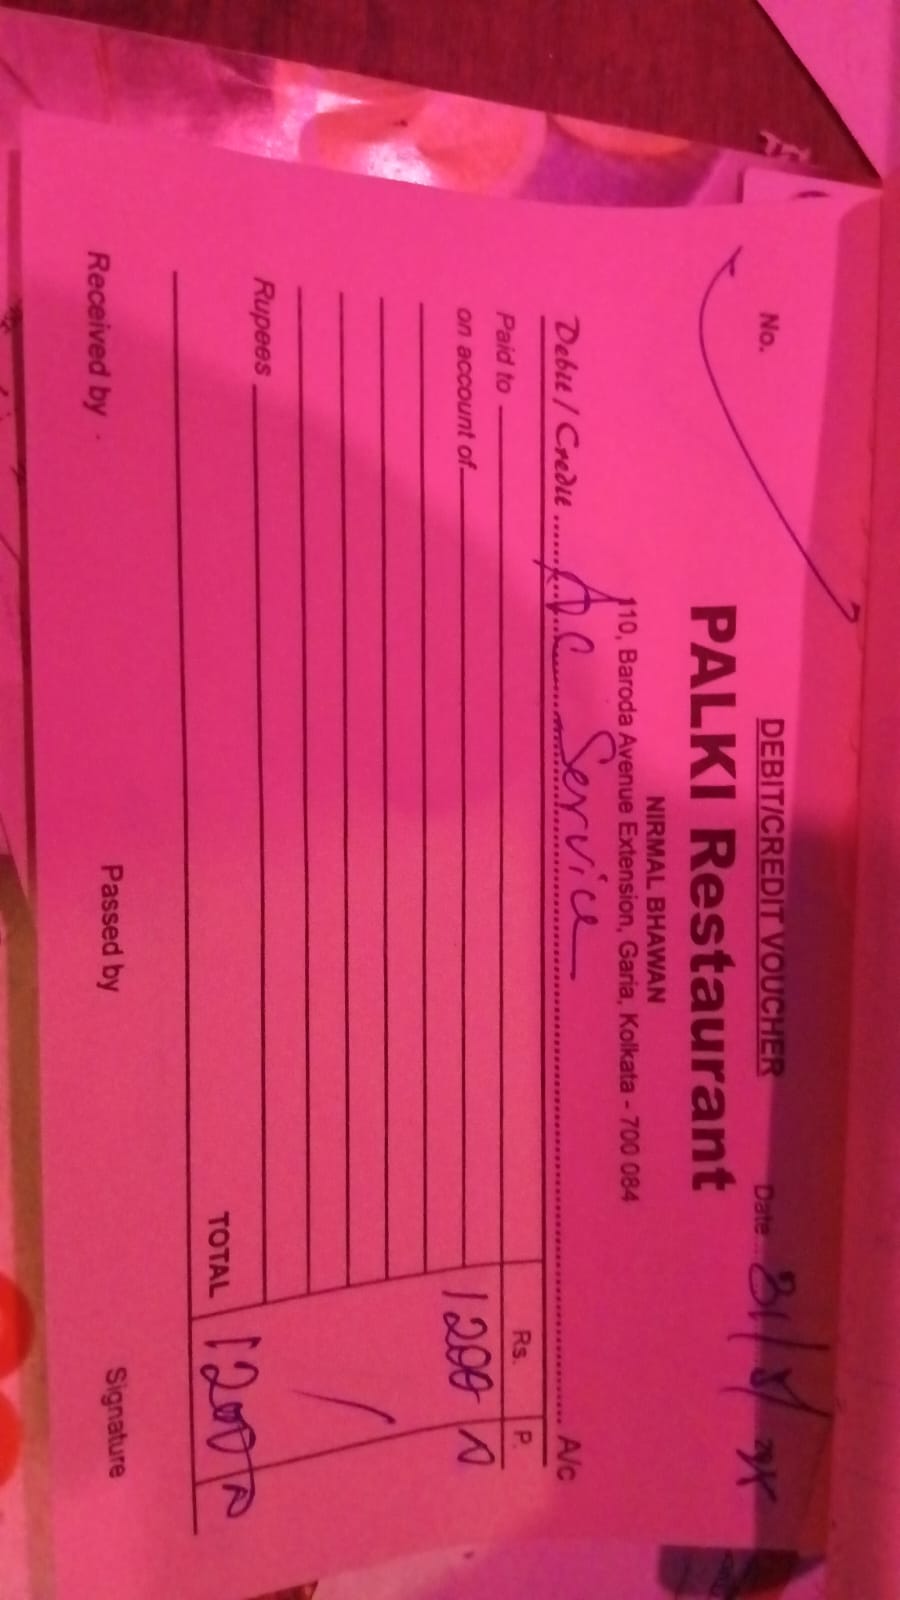 DEBIT/CREDIT VOUCHER
No.
Date 31/8/
PALKI Restaurant
NIRMAL BHAWAN
110, Baroda Avenue Extension, Garia, Kolkata - 700 084
Debit / Credit AC Service A/c
Rs. P.
Paid to
on account of 1200
Rupees
TOTAL 1200
Received by Passed by Signature